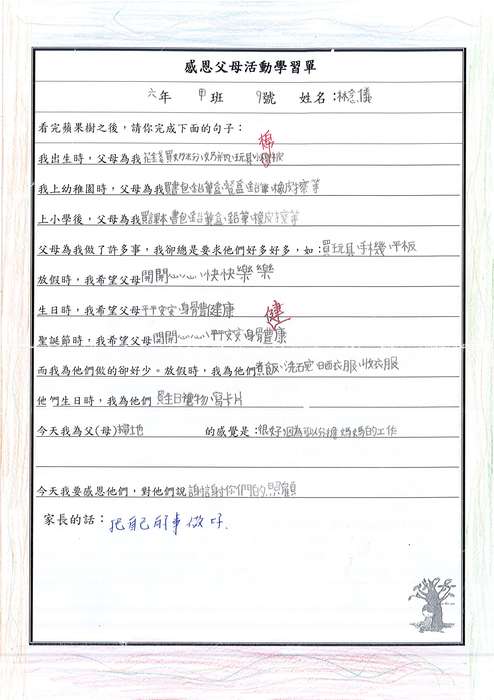 感恩父母活動學習單
六年 甲班 9號 姓名:林意儀
看完蘋果樹之後,請你完成下面的句子:
棉
我出生時,父母為我 奶粉、奶瓶、玩具、小棉被
我上幼稚園時,父母為我買書包、鉛筆盒、餐盒、鉛筆、橡皮擦等
上小學後,父母為我買課本、書包、鉛筆盒、鉛筆、橡皮擦等
父母為我做了許多事,我卻總是要求他們好多好多,如:買玩具、手機、平板
放假時,我希望父母開開心心、快快樂樂
生日時,我希望父母平平安安、身體健康
健
聖誕節時,我希望父母開開心心、平平安安、身體健康
而我為他們做的卻好少。放假時,我為他們煮飯、洗碗、晒衣服、收衣服
他們生日時,我為他們 買生日禮物、寫卡片
今天我為父(母)掃地 的感覺是:很好,因為可以分擔媽媽的工作
今天我要感恩他們,對他們說 謝謝你們的照顧
家長的話:把自己的事做好.